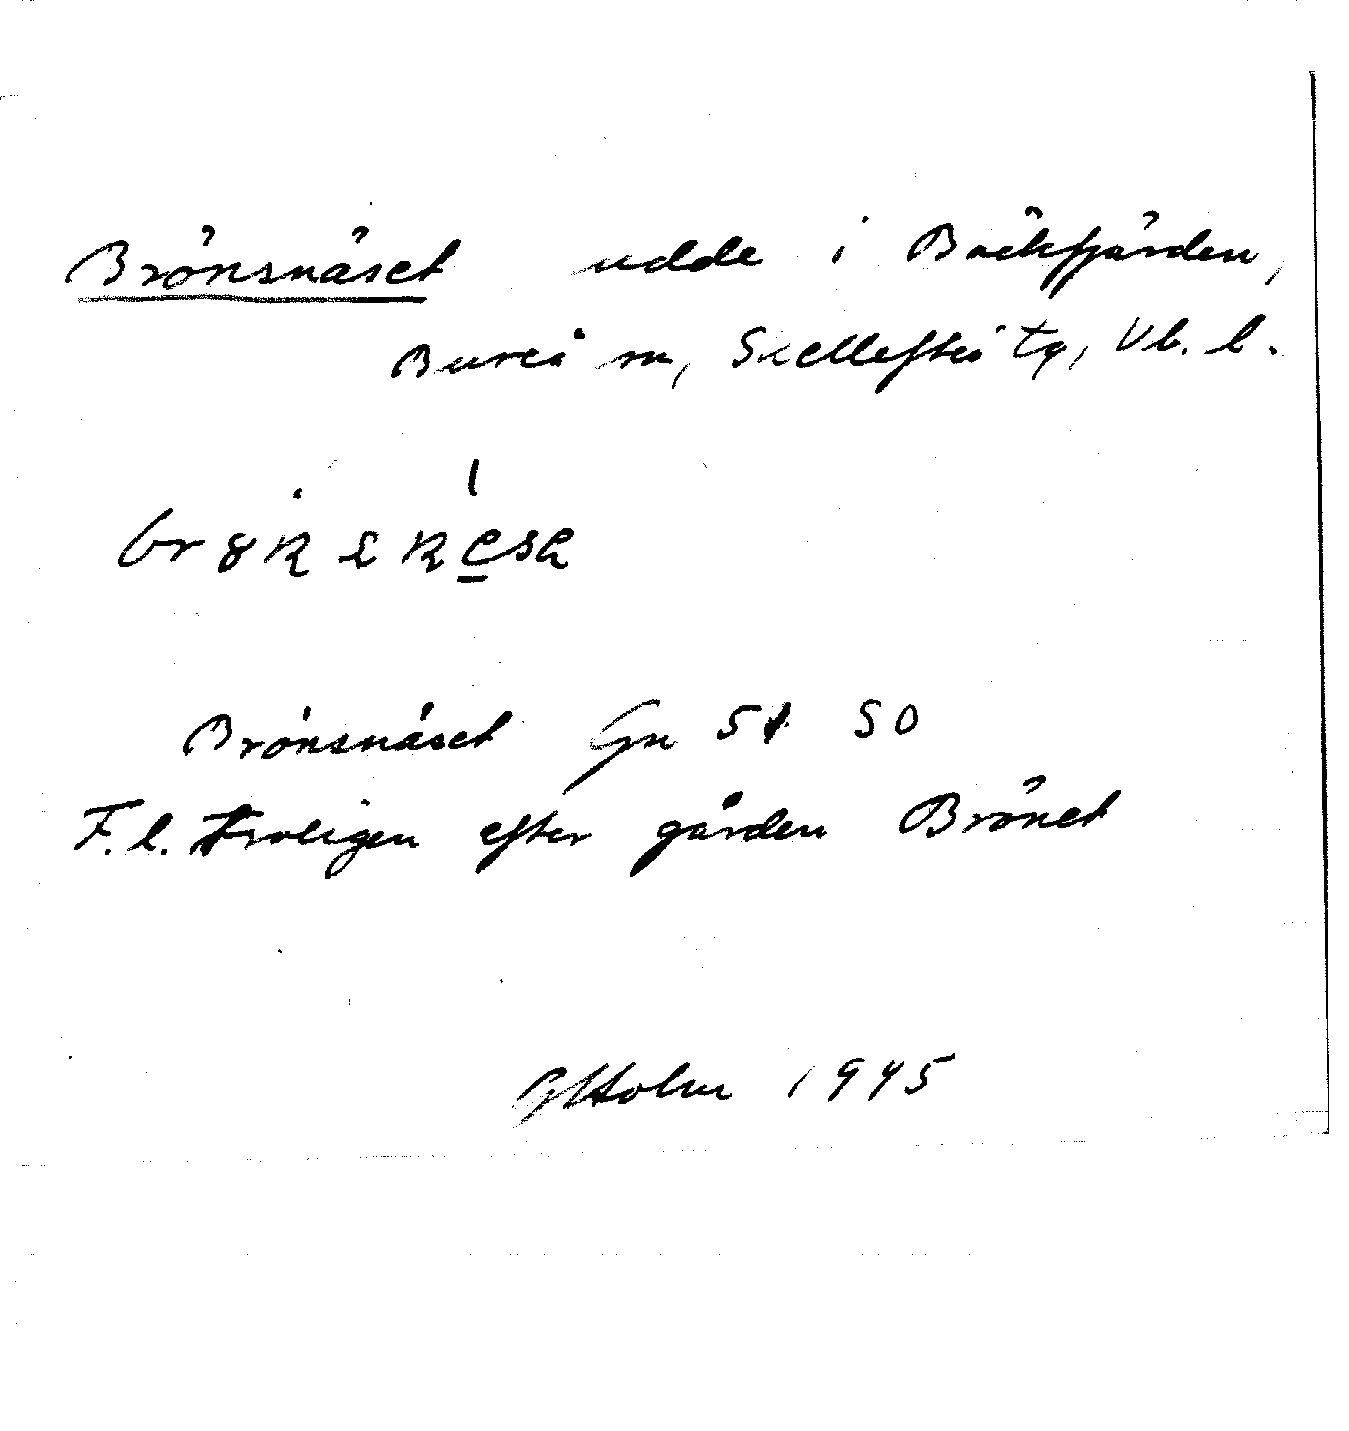 Brönsnäset udde i Bäckfjärden,
Bureå sn, Skellefteå tg, Vb. l.
Brönsnäset Gn 54 SO
F. l. Troligen efter gården Brönet
Holm 1945